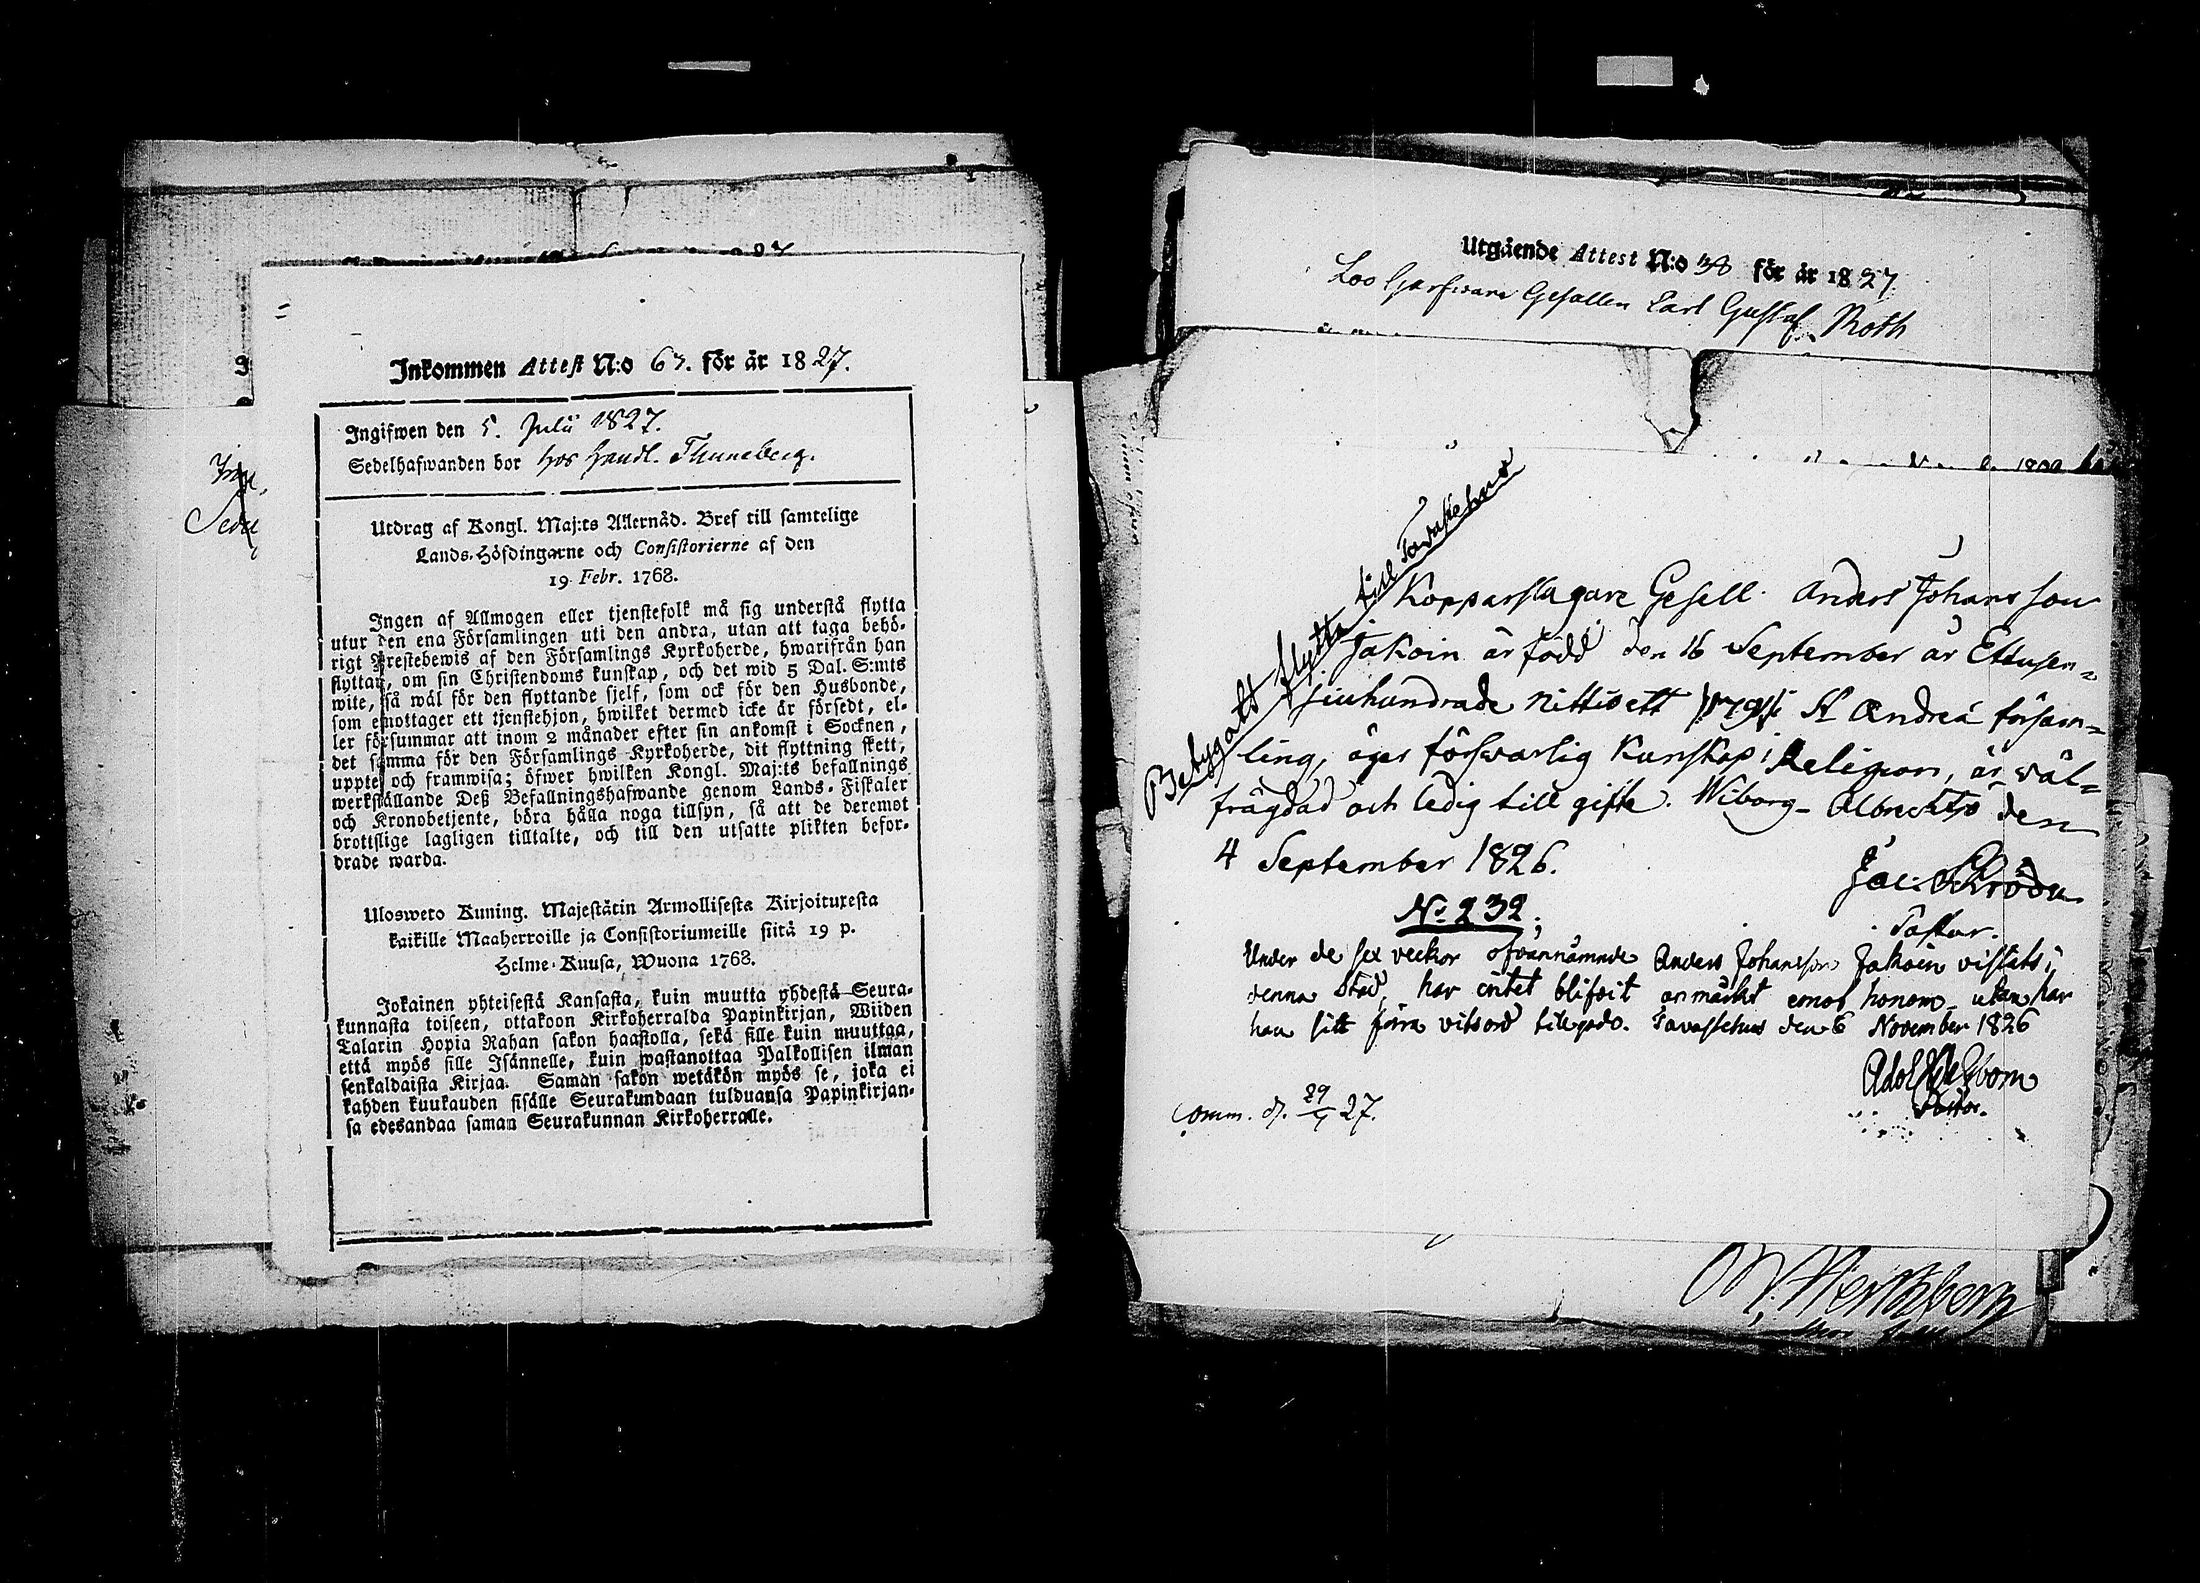 Inkommen Attest N:o 67. för år 1827.
Ingifwen den 5. Julii 1827.
Sedelhafwanden bor hos Handl. Thuneberg.
Utdrag af Kongl. Maj:ts Allernåd. Bref till samtelige
Lands-Höfdingarne och Consistorierne af den
19 Febr. 1768.
Ingen af Allmogen eller tjenstefolk må sig understå flytta
utur den ena Församlingen uti den andra, utan att taga behö-
rigt Prestebewis af den Församlings Kyrkoherde, hwarifrån han
flyttar, om sin Christendoms kunskap, och det wid 5 Dal. S:mts
wite, så wäl för den flyttande sjelf, som ock för den Husbonde,
som emottager ett tjenstehjon, hwilket dermed icke är försedt, el-
ler försummar att inom 2 månader efter sin ankomst i Socknen,
det samma för den Församlings Kyrkoherde, dit flyttning skett,
uppte och framwisa; öfwer hwilken Kongl. Maj:ts befallnings
werkställande Deß Befallningshafwande genom Lands-Fiskaler
och Kronobetjente, böra hålla noga tillsyn, så att de deremot
brottslige lagligen tilltalte, och till den utsatte plikten befor-
drade warda.
Ulosweto Kuning. Majestätin Armollisesta Kirjoituxesta
kaikille Maaherroille ja Consistoriumeille siitä 19 p.
Helme-Kuusa, Wuona 1768.
Jokainen yhteisestä Kansasta, kuin muutta yhdestä Seura-
kunnasta toiseen, ottakoon Kirkoherralda Papinkirjan, Wiiden
Talarin Hopia Rahan sakon haastolla, sekä sille kuin muuttaa,
että myös sille Isännelle, kuin wastanottaa Palkollisen ilman
senkaldaista Kirjaa. Saman sakon wetäkön myös se, joka ei
kahden kuukauden sisälle Seurakundaan tulduansa Papinkirjan-
sa edesandaa saman Seurakunnan Kirkoherralle.
Utgående Attest N:o 38 för år 1827
Loo Garfware Gesällen Carl Gustaf Roth
Betygatt flytta till Tavastehus
Kopparslagare Gesell. Anders Johansson
Jakoin är född den 16 September år Ettusen=
sjuhundrade Nittioett 1791 i St Andreæ försam=
ling, äger försvarlig Kunskap i Religion, är väl=
frägdad och ledig till gifte. Wiborg den
4 September 1826.
Pastor.
No 232.
Under de sex veckor ofvannämnde Anders Johansson Jakoin vistats i
denna Stad, har intet blifvit anmärkt emot honom utan har
han sitt förra vitsord tillgodo. Tavastehus den 6 November 1826
Pastor.
Comm. d. 29/ 27.